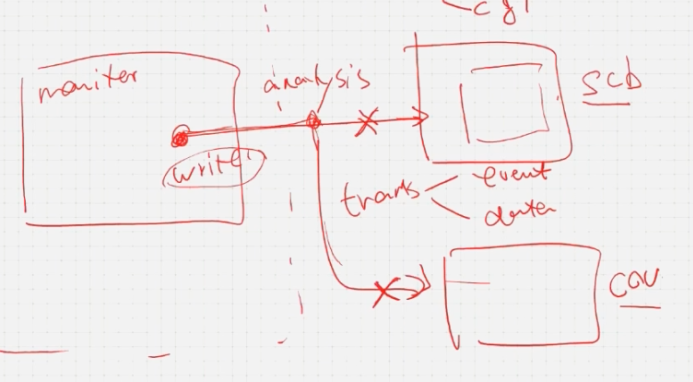 moniter
analysis
scb
write
trans
event
data
cov